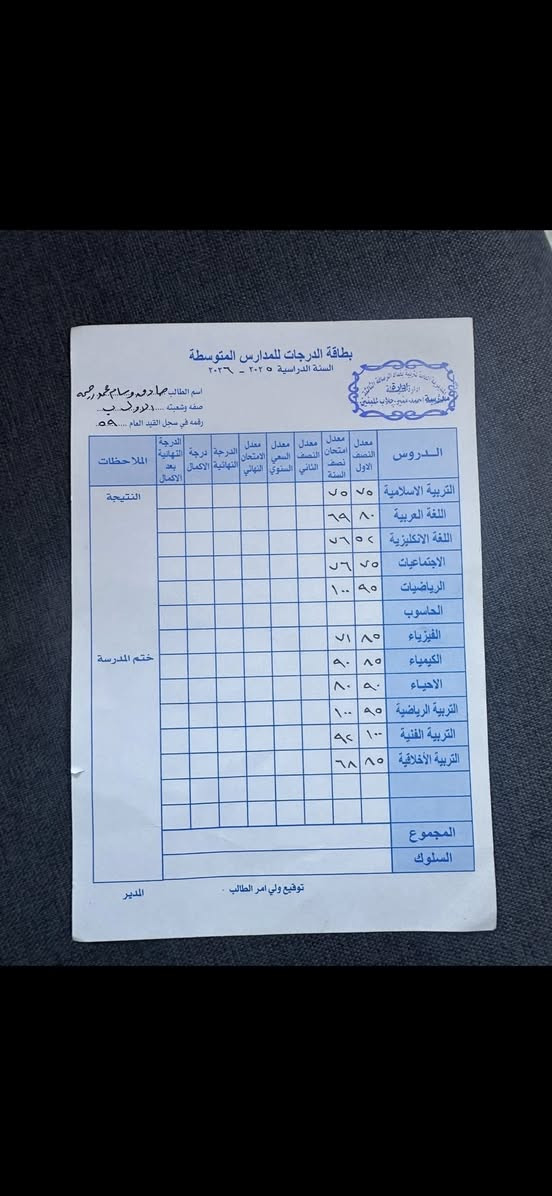 بطاقة الدرجات للمدارس المتوسطة
السنة الدراسية ٢٠٢٥ - ٢٠٢٦
ادارة
اسم الطالب صادق وسام محمد
صفه وشعبته ..... الاول ب
رقمه في سجل القيد العام ..... ٥٩
الدروس معدل النصف الاول معدل امتحان نصف السنة معدل النصف الثاني معدل السعي السنوي معدل الامتحان النهائي الدرجة النهائية درجة الاكمال الدرجة النهائية بعد الاكمال الملاحظات
التربية الاسلامية ٧٥ ٧٥ النتيجة
اللغة العربية ٨٠ ٦٩
اللغة الانكليزية ٥٢ ٧٦
الاجتماعيات ٧٥ ٧٦
الرياضيات ٩٥ ١٠٠
الحاسوب
الفيزياء ٨٥ ٧١
الكيمياء ٨٥ ٩٠ ختم المدرسة
الاحياء ٩٠ ٨٠
التربية الرياضية ٩٥ ١٠٠
التربية الفنية ١٠٠ ٩٢
التربية الأخلاقية ٨٥ ٦٨
المجموع
السلوك
توقيع ولي امر الطالب
المدير